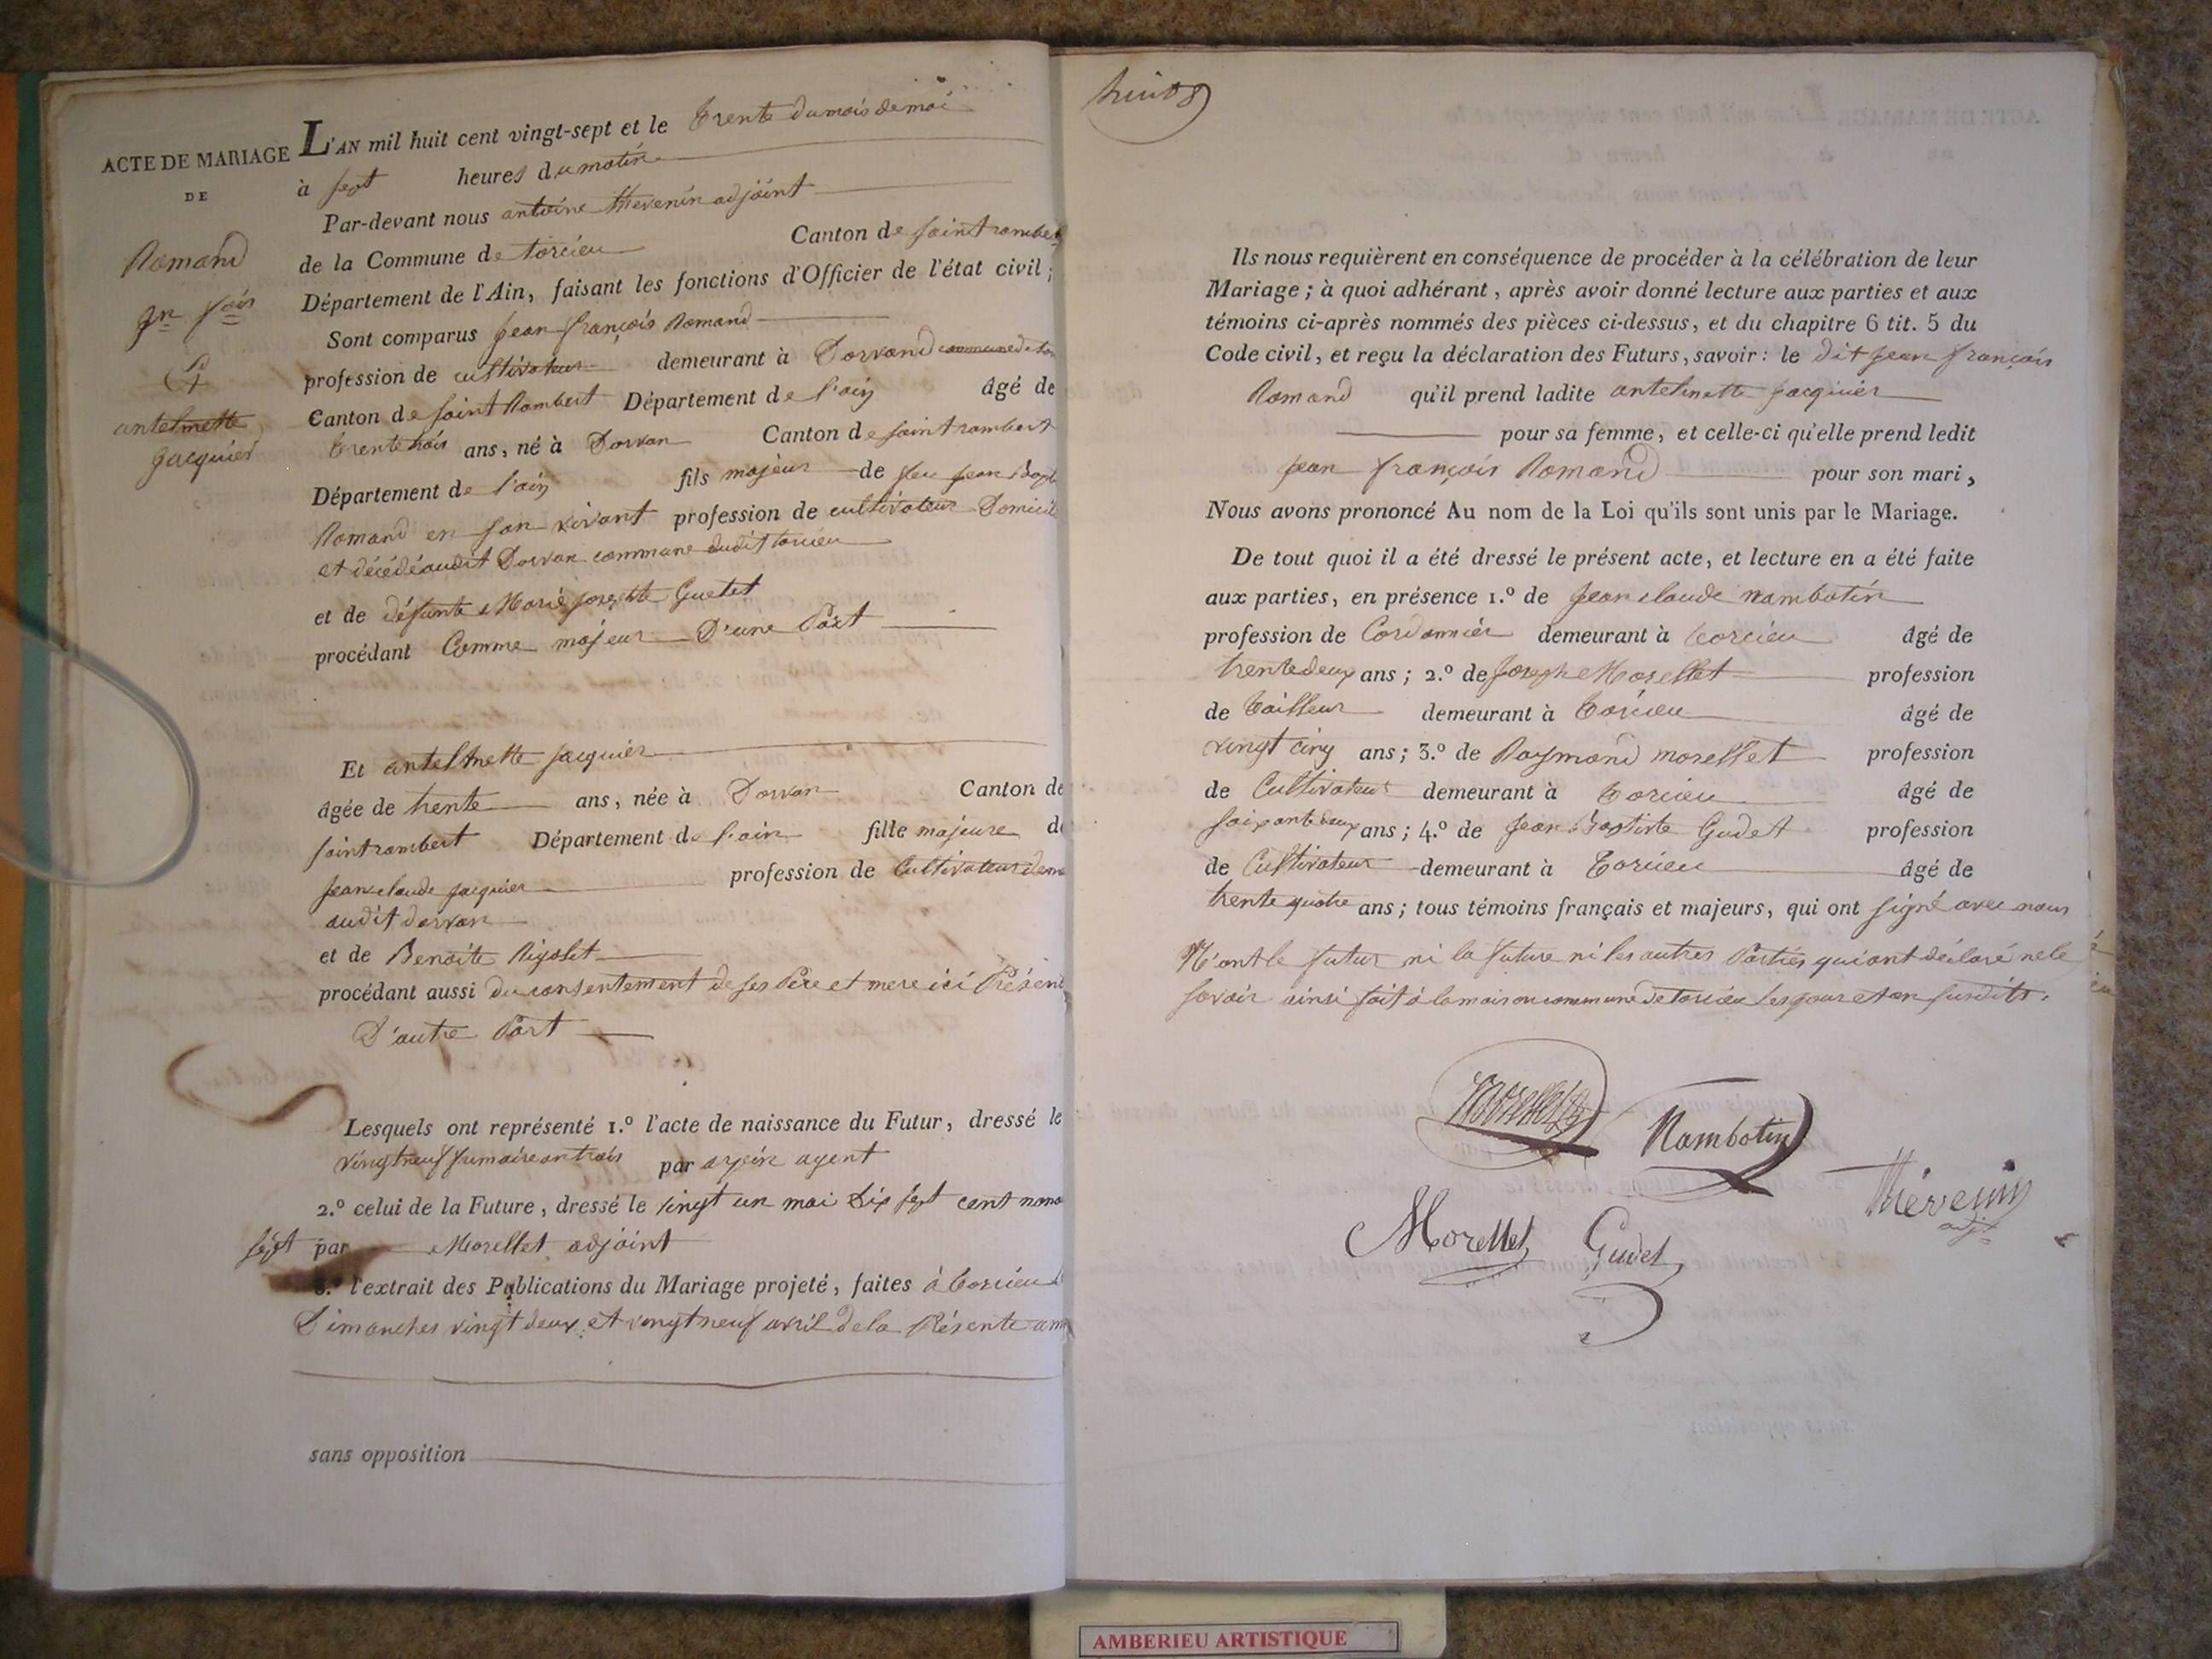 ACTE DE MARIAGE
DE
Romand
jn fois
Et
antelmette
jacquier
L'AN mil huit cent vingt-sept et le trente du mois de mai
à sept heures du matin
Par-devant nous antoine thevenin adjoint
de la Commune de torcieu Canton de saint rambert
Département de l'Ain, faisant les fonctions d'Officier de l'état civil ;
Sont comparus jean françois Romand
profession de cultivateur demeurant à Dorvand commune de tor
Canton de saint Rambert Département de l'ain âgé de
trente trois ans, né à Dorvan Canton de saint rambert
Département de l'ain fils majeur de feu jean Bapt
Romand en son vivant profession de cultivateur Domicil
et décédé audit Dorvan commune dudit torcieu
et de défunte Marie josephte Guetet
procédant Comme majeur D'une Part
Et antelmette jacquier
âgée de trente ans, née à Dorvan Canton de
saint rambert Département de l'ain fille majeure de
jean claude jacquier profession de Cultivateur dem
audit dorvan
et de Benoite Rigolet
procédant aussi du consentement de ses Père et mere ici Présent
D'autre Part
Lesquels ont représenté 1.º l'acte de naissance du Futur, dressé le
vingt neuf frimaire an trois par arpin agent
2.º celui de la Future, dressé le vingt un mai dix sept cent nona
sept par Morellet adjoint
3.º l'extrait des Publications du Mariage projeté, faites à torcieu
Dimanches vingt deux et vingt neuf avril de la Présente ann
sans opposition
huit 8
Ils nous requièrent en conséquence de procéder à la célébration de leur
Mariage ; à quoi adhérant, après avoir donné lecture aux parties et aux
témoins ci-après nommés des pièces ci-dessus, et du chapitre 6 tit. 5 du
Code civil, et reçu la déclaration des Futurs, savoir : le dit jean françois
Romand qu'il prend ladite antelmette jacquier
pour sa femme, et celle-ci qu'elle prend ledit
jean françois Romand pour son mari,
Nous avons prononcé Au nom de la Loi qu'ils sont unis par le Mariage.
De tout quoi il a été dressé le présent acte, et lecture en a été faite
aux parties, en présence 1.º de jean claude nambotin
profession de Cordonnier demeurant à torcieu âgé de
trente deux ans ; 2.º de joseph Morellet profession
de tailleur demeurant à torcieu âgé de
vingt cinq ans ; 3.º de Raymond morellet profession
de Cultivateur demeurant à torcieu âgé de
soixante deux ans ; 4.º de jean Baptiste Gudet profession
de Cultivateur demeurant à torcieu âgé de
trente quatre ans ; tous témoins français et majeurs, qui ont signé avec nous
N'ont le futur ni la future ni les autres Parties qui ont déclaré ne le
savoir ainsi fait à la maison commune de torcieu les jour et an susdits.
Nambotin
Morellet Gudet
Thévenin
adjt
AMBERIEU ARTISTIQUE